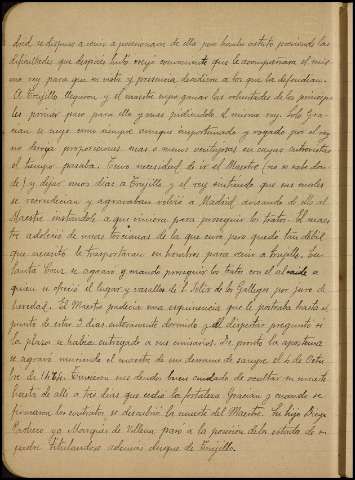 drid, se dispuso a venir a posesionarse de ella pero hombre astuto previendo las
dificultades que después hubo creyo conveniente que le acompañara el mis
mo rey para que su vista y presencia decidiera a los que la defendian.
A Trujillo llegaron y el maestre supo ganar las voluntades de los principa
les primer paso para ello y mas pidiendolo el mismo rey. Solo Gra-
cian se nego como siempre aunque importunado y rogado por el rey
no dio proporciones mas o menos ventajosas en cuyas entrevistas
el tiempo pasaba. Tuvo necesidad de ir el Maestre (no se sabe don
de) y dejar unos dias a Trujillo y el rey sintiendo que sus males
se recrudecian y agravaban volvio a Madrid, desde alli al
Maestre instandole a que viniera para proseguir los tratos. El maes
tre adolecio de unas tercianas de las que curo pero quedo tan débil
que necesito le trasportaran en hombros para venir a Trujillo. En
Santa Cruz se agravo y mando proseguir los tratos con el alcaide a
quien se ofrecio el lugar y vasallos de S. Felix de los Gallegos por juro de
heredad. El Maestre padecia una esquinencia que le postraba hasta el
punto de estar 3 dias enteramente dormido y al despertar pregunto si
la plaza se habia entregado a sus emisarios. De pronto la apostema
se agravo muriendo el maestre de un derrame de sangre el 4 de Octu
bre de 1474. Tuvieron sus deudos buen cuidado de ocultar su muerte
hasta de alli a tres dias que cedio la fortaleza Gracian y cuando se
firmaron los contratos se descubrio la muerte del Maestre. Su hijo Diego
Pacheco ya Marqués de Villena, paso a la posesion de los estados de su
padre titulandose ademas duque de Trujillo.